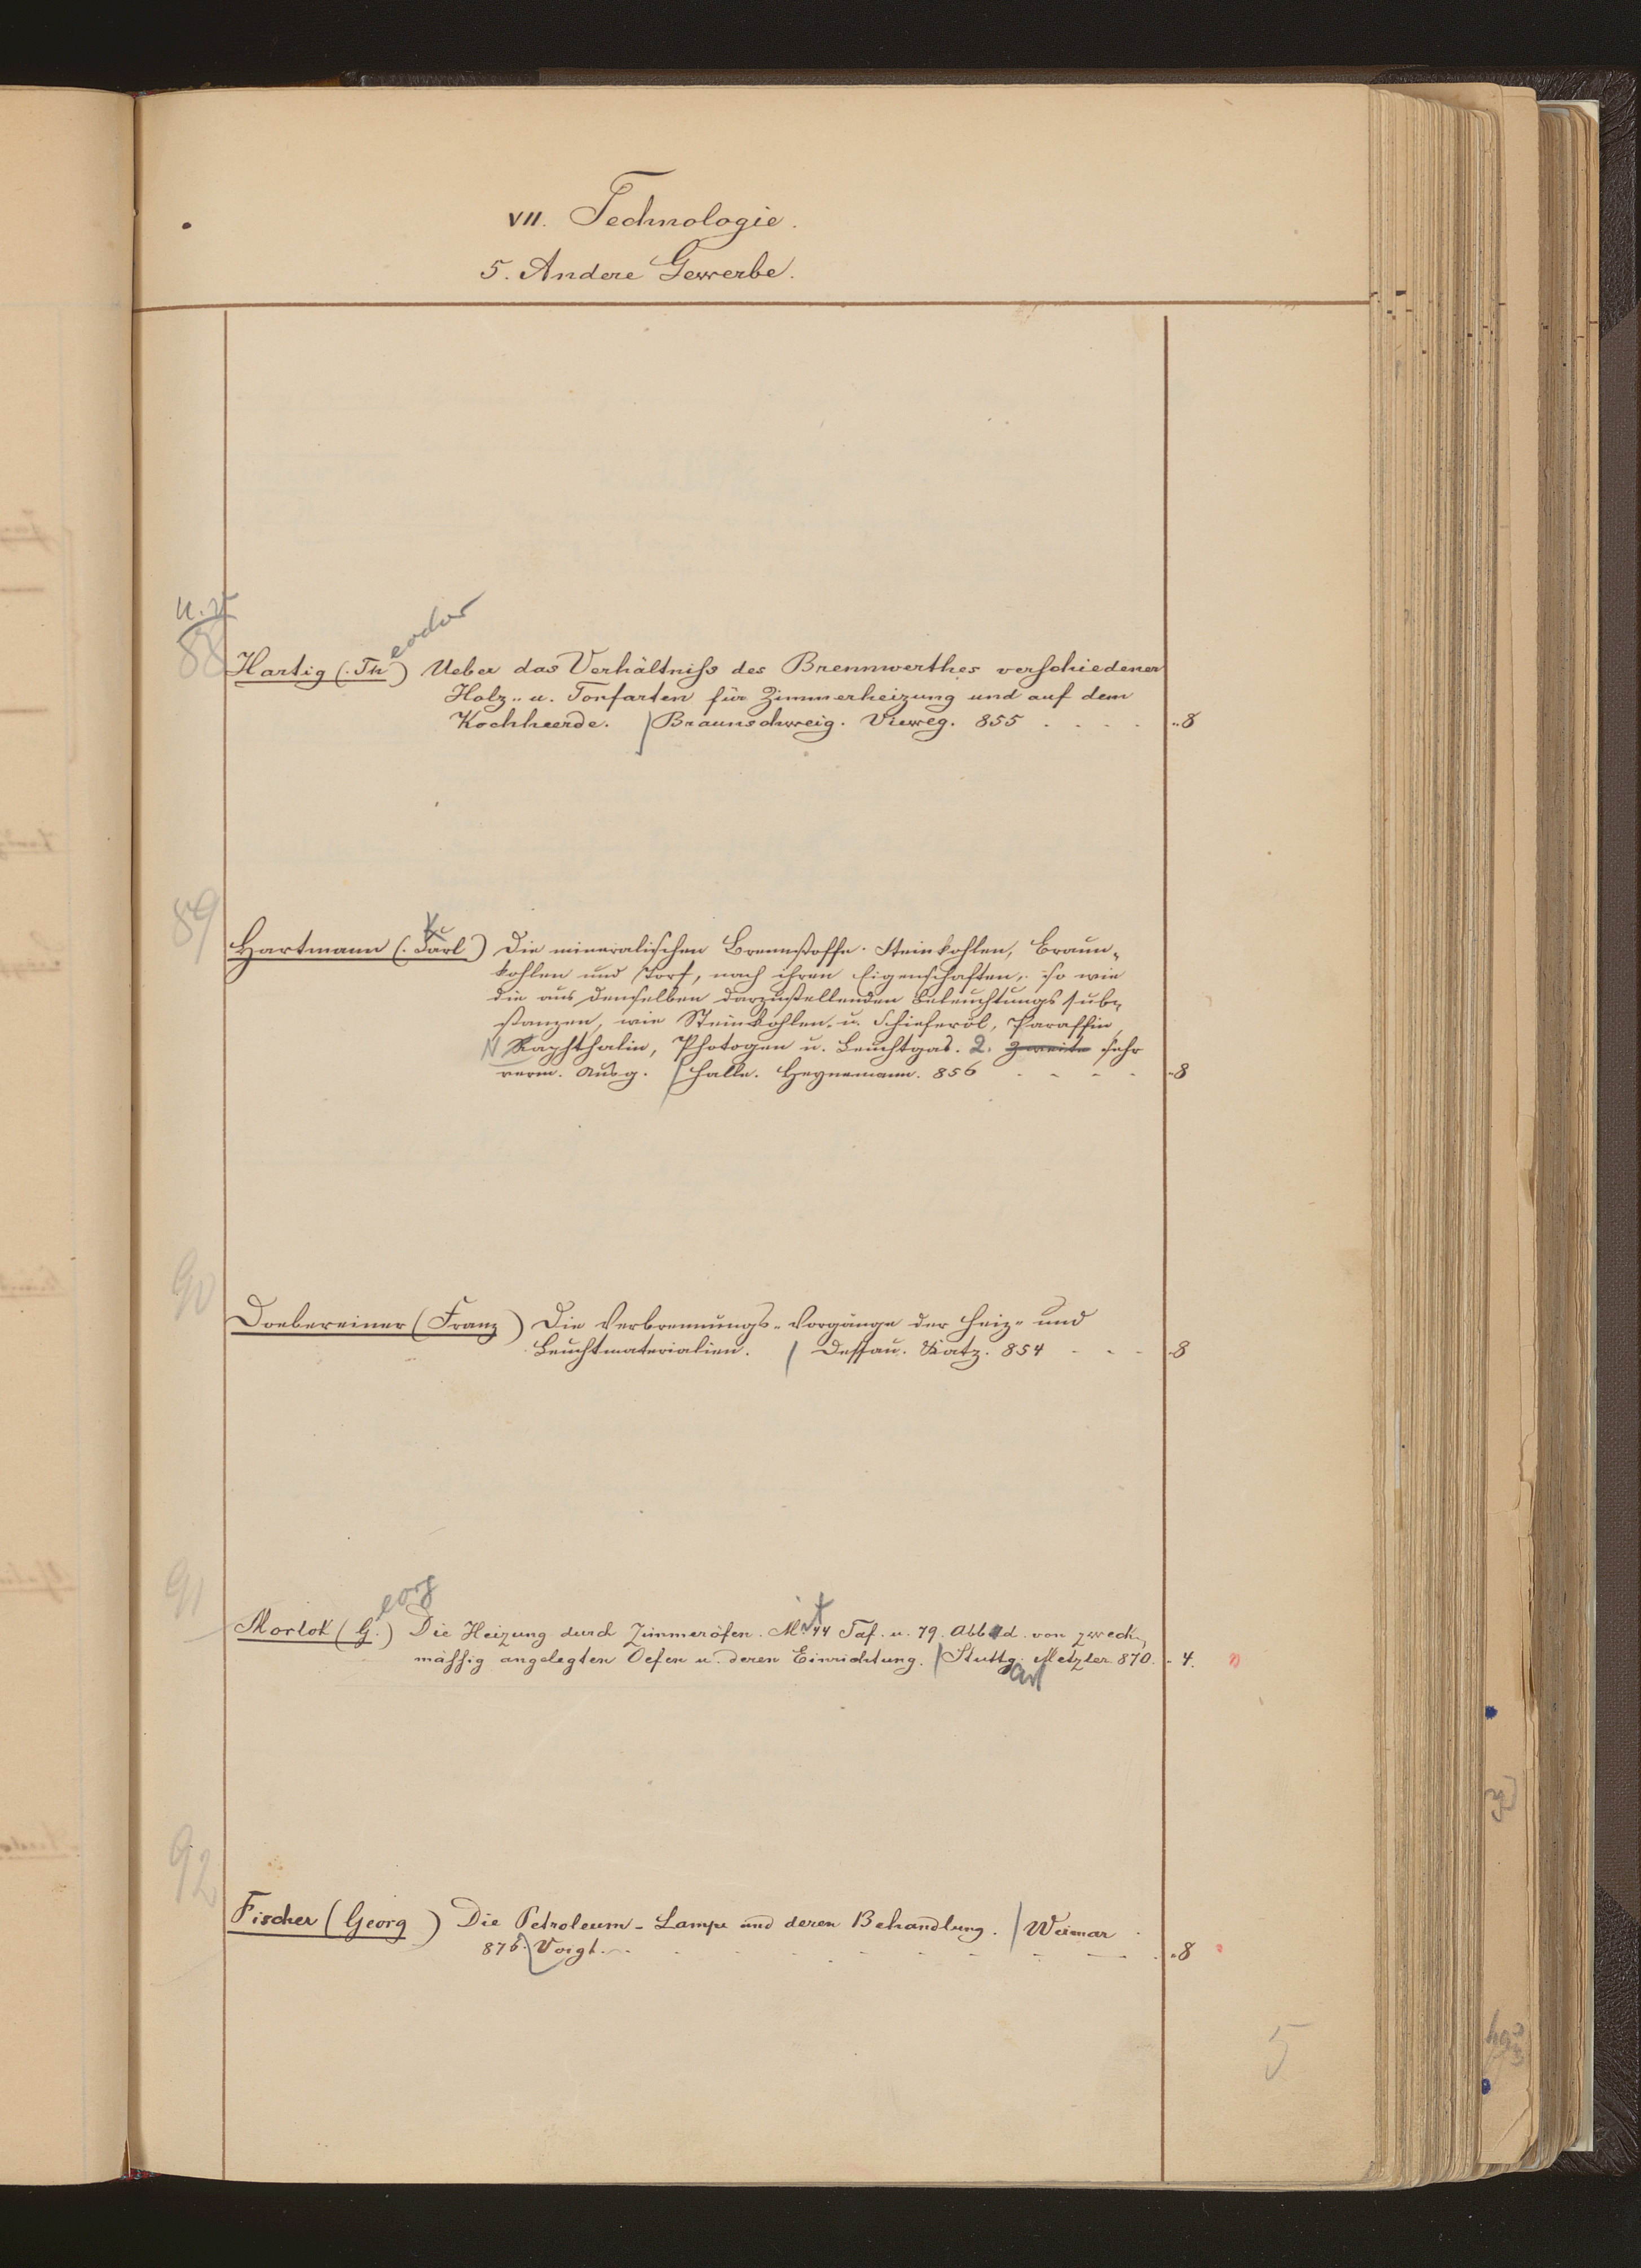 VII. Technologie.
5. Andere Gewerbe.
88
Hartig (Theodor) Ueber das Verhältniss des Brennwerthes verschiedener
Holz- u. Torfarten für Zimmerheizung und auf dem
Kochheerde. / Braunschweig. Vieweg. 855 . . . . 8
89
Hartmann (Carl) Die mineralischen Brennstoffe. Steinkohlen, Braun-
kohlen und Torf, nach ihren Eigenschaften, so wie
die aus denselben darzustellenden Beleuchtungssub-
stanzen, wie Steinkohlen- u. Schieferöl, Paraffin,
Naphthalin, Photogen u. Leuchtgas. 2. Zweite sehr
verm. Ausg. / Halle. Heynemann. 856 - - - - 8
90
Doebereiner (Franz) Die Verbrennungs-Vorgänge der Heiz- und
Leuchtmaterialien. / Dessau. Katz. 854 - - - 8
91
Morlok (Georg) Die Heizung durch Zimmeröfen. Mit 44 Taf. u. 79. Abbild. von zweck-
mässig angelegten Oefen u. deren Einrichtung. / Stuttgart Metzler. 870. 4.
92
Fischer (Georg) Die Petroleum-Lampe und deren Behandlung. / Weimar
876. Voigt. 8
5